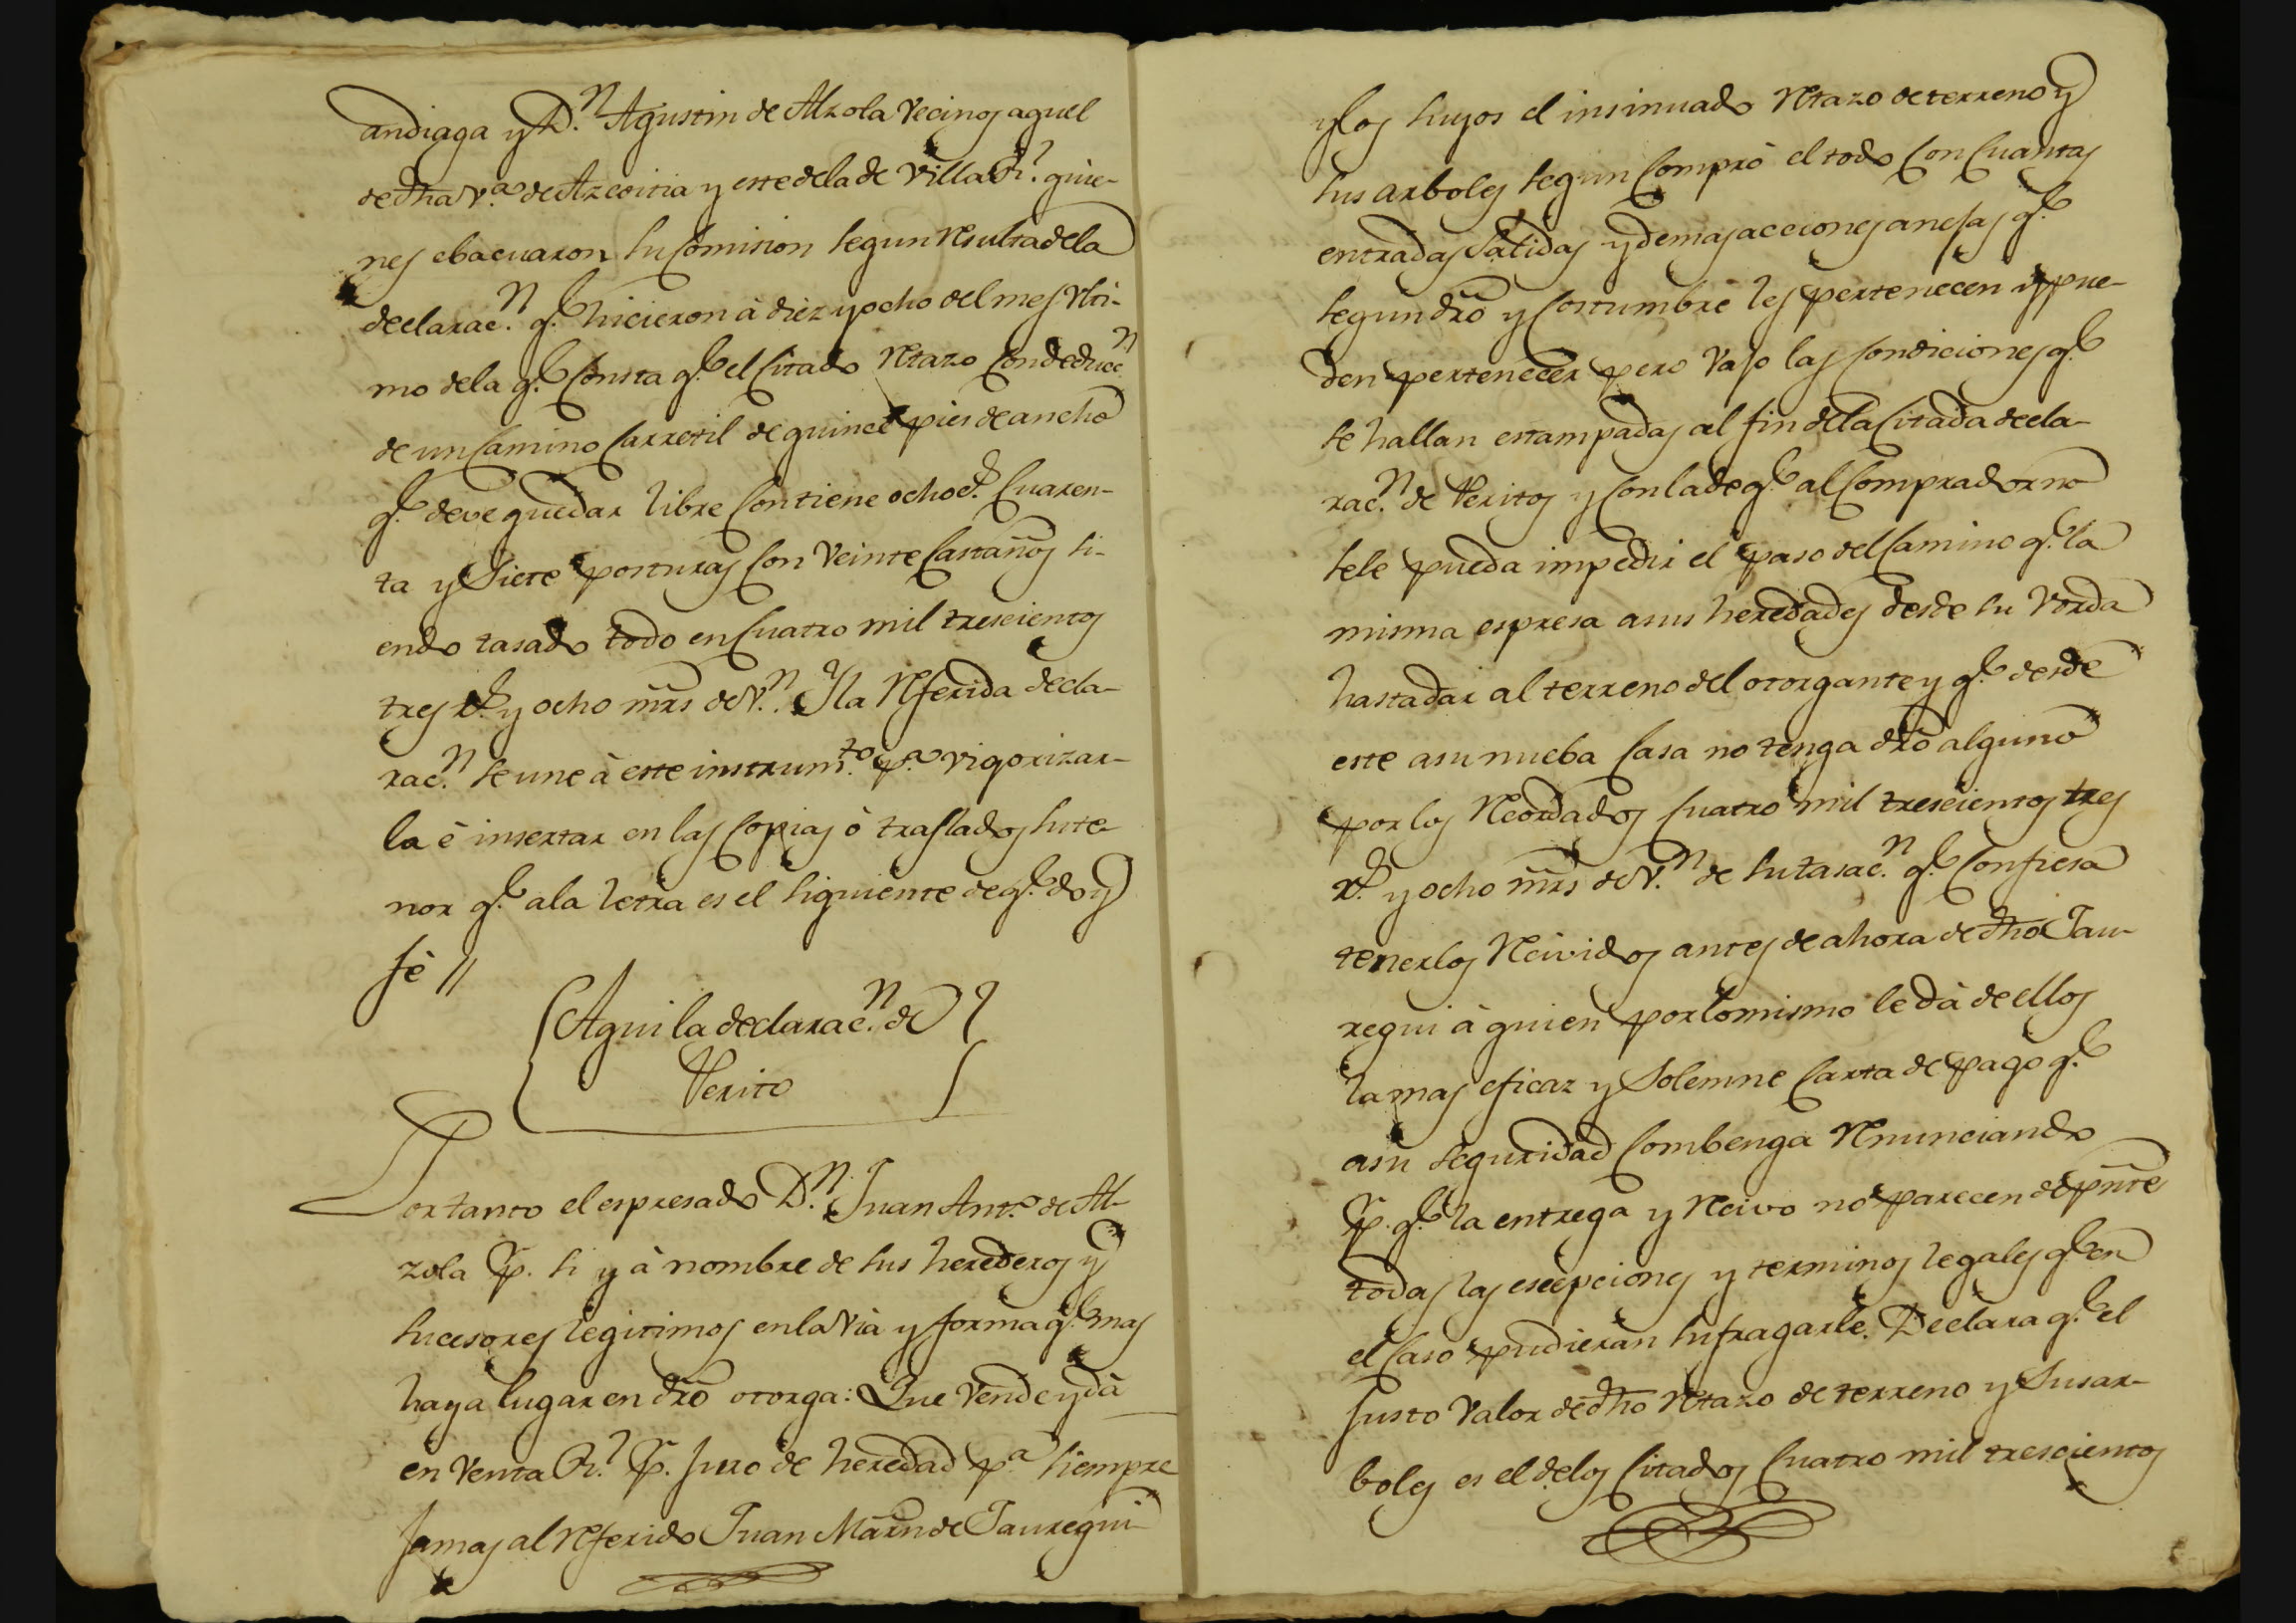 andiaga y D.n Agustin de Alzola Vecinos aquel
de dha v.a de Azcoitia y este dela de Villa R.l quie-
nes ebacuaron su Comision segun resulta dela
declarac.n q.e hicieron à diez y ocho del mes Ulti-
mo dela q.e Consta q.e el Citado retazo Con deducc.n
de un Camino Carretil de quince pies de ancho
q.e deve quedar libre Contiene ochoc.s Cuaren-
ta y Siete posturas Con Veinte Castaños si-
endo tasado todo en Cuatro mil trescientos
tres r.s y ocho mrs de V.n Y la referida decla-
rac.n se une à este instrum.to p.a vigorizar-
la è insertar en las Copias ò traslados su te-
nor q.e ala letra es el siguiente de q.e doy
fè //
Aqui la declarac.n de
Perito
Por tanto el espresado D.n Juan Ant.o de Al-
zola p. si y à nombre de sus herederos y
sucesores legitimos en la via y forma q.e mas
haya lugar en dro otorga: Que Vende y dà
en Venta R.l p. Juro de heredad p.a siempre
Jamas al referido Juan Marn de Jauregui
y los suyos el insinuado retazo de terreno y
sus arboles segun Compró el todo Con Cuantas
entradas Salidas y demas acciones anejas q.e
segun dro y Costumbre les pertenecen y pue-
den pertenecer pero vajo las Condiciones q.e
se hallan estampadas al fin dela Citada decla-
rac.n de Peritos y Con la de q.e al Comprador no
sele pueda impedir el paso del Camino q.e la
misma espresa a sus heredades desde su Vorda
hasta dar al terreno del otorgante y q.e desde
este a su nueba Casa no tenga dro alguno
por los recordados Cuatro mil trescientos tres
r.s y ocho mrs de V.n de su tasac.n q.e Confiesa
tenerlos recividos antes de ahora de dho Jau-
regui à quien por lo mismo le dà de ellos
la mas eficaz y Solemne Carta de pago q.e
a su seguridad Combenga renunciando
p. q.e la entrega y recivo no parecen de pnte
todas las escepciones y terminos legales q.e en
el Caso pudieran sufragarle. Declara q.e el
Justo Valor de dho retazo de terreno y Sus ar-
boles es el de los Citados Cuatro mil trescientos